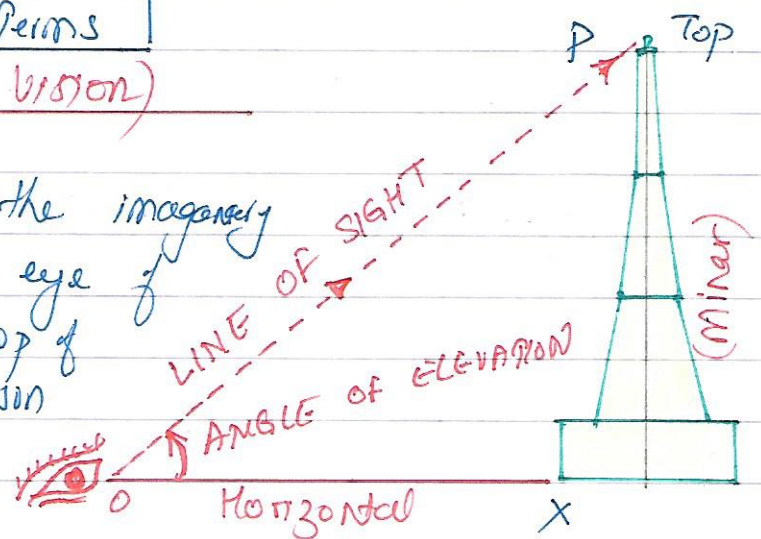 Terms
vision)
the imaganery
eye of
op of
sion
P Top
LINE OF SIGHT
ANGLE OF ELEVATION
(Minar)
O Horizontal X